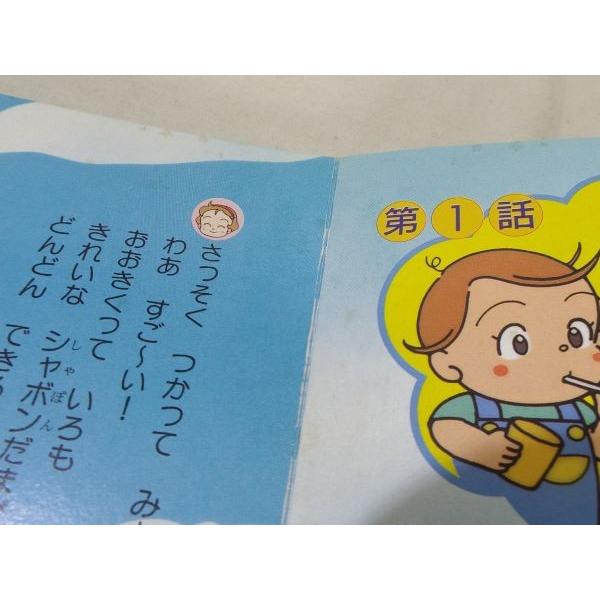 さっそく つかって み
わあ すご〜い!
おおきくって
きれいな いろも
どんどん シャボンだま
しゃぼん
できる
第1話